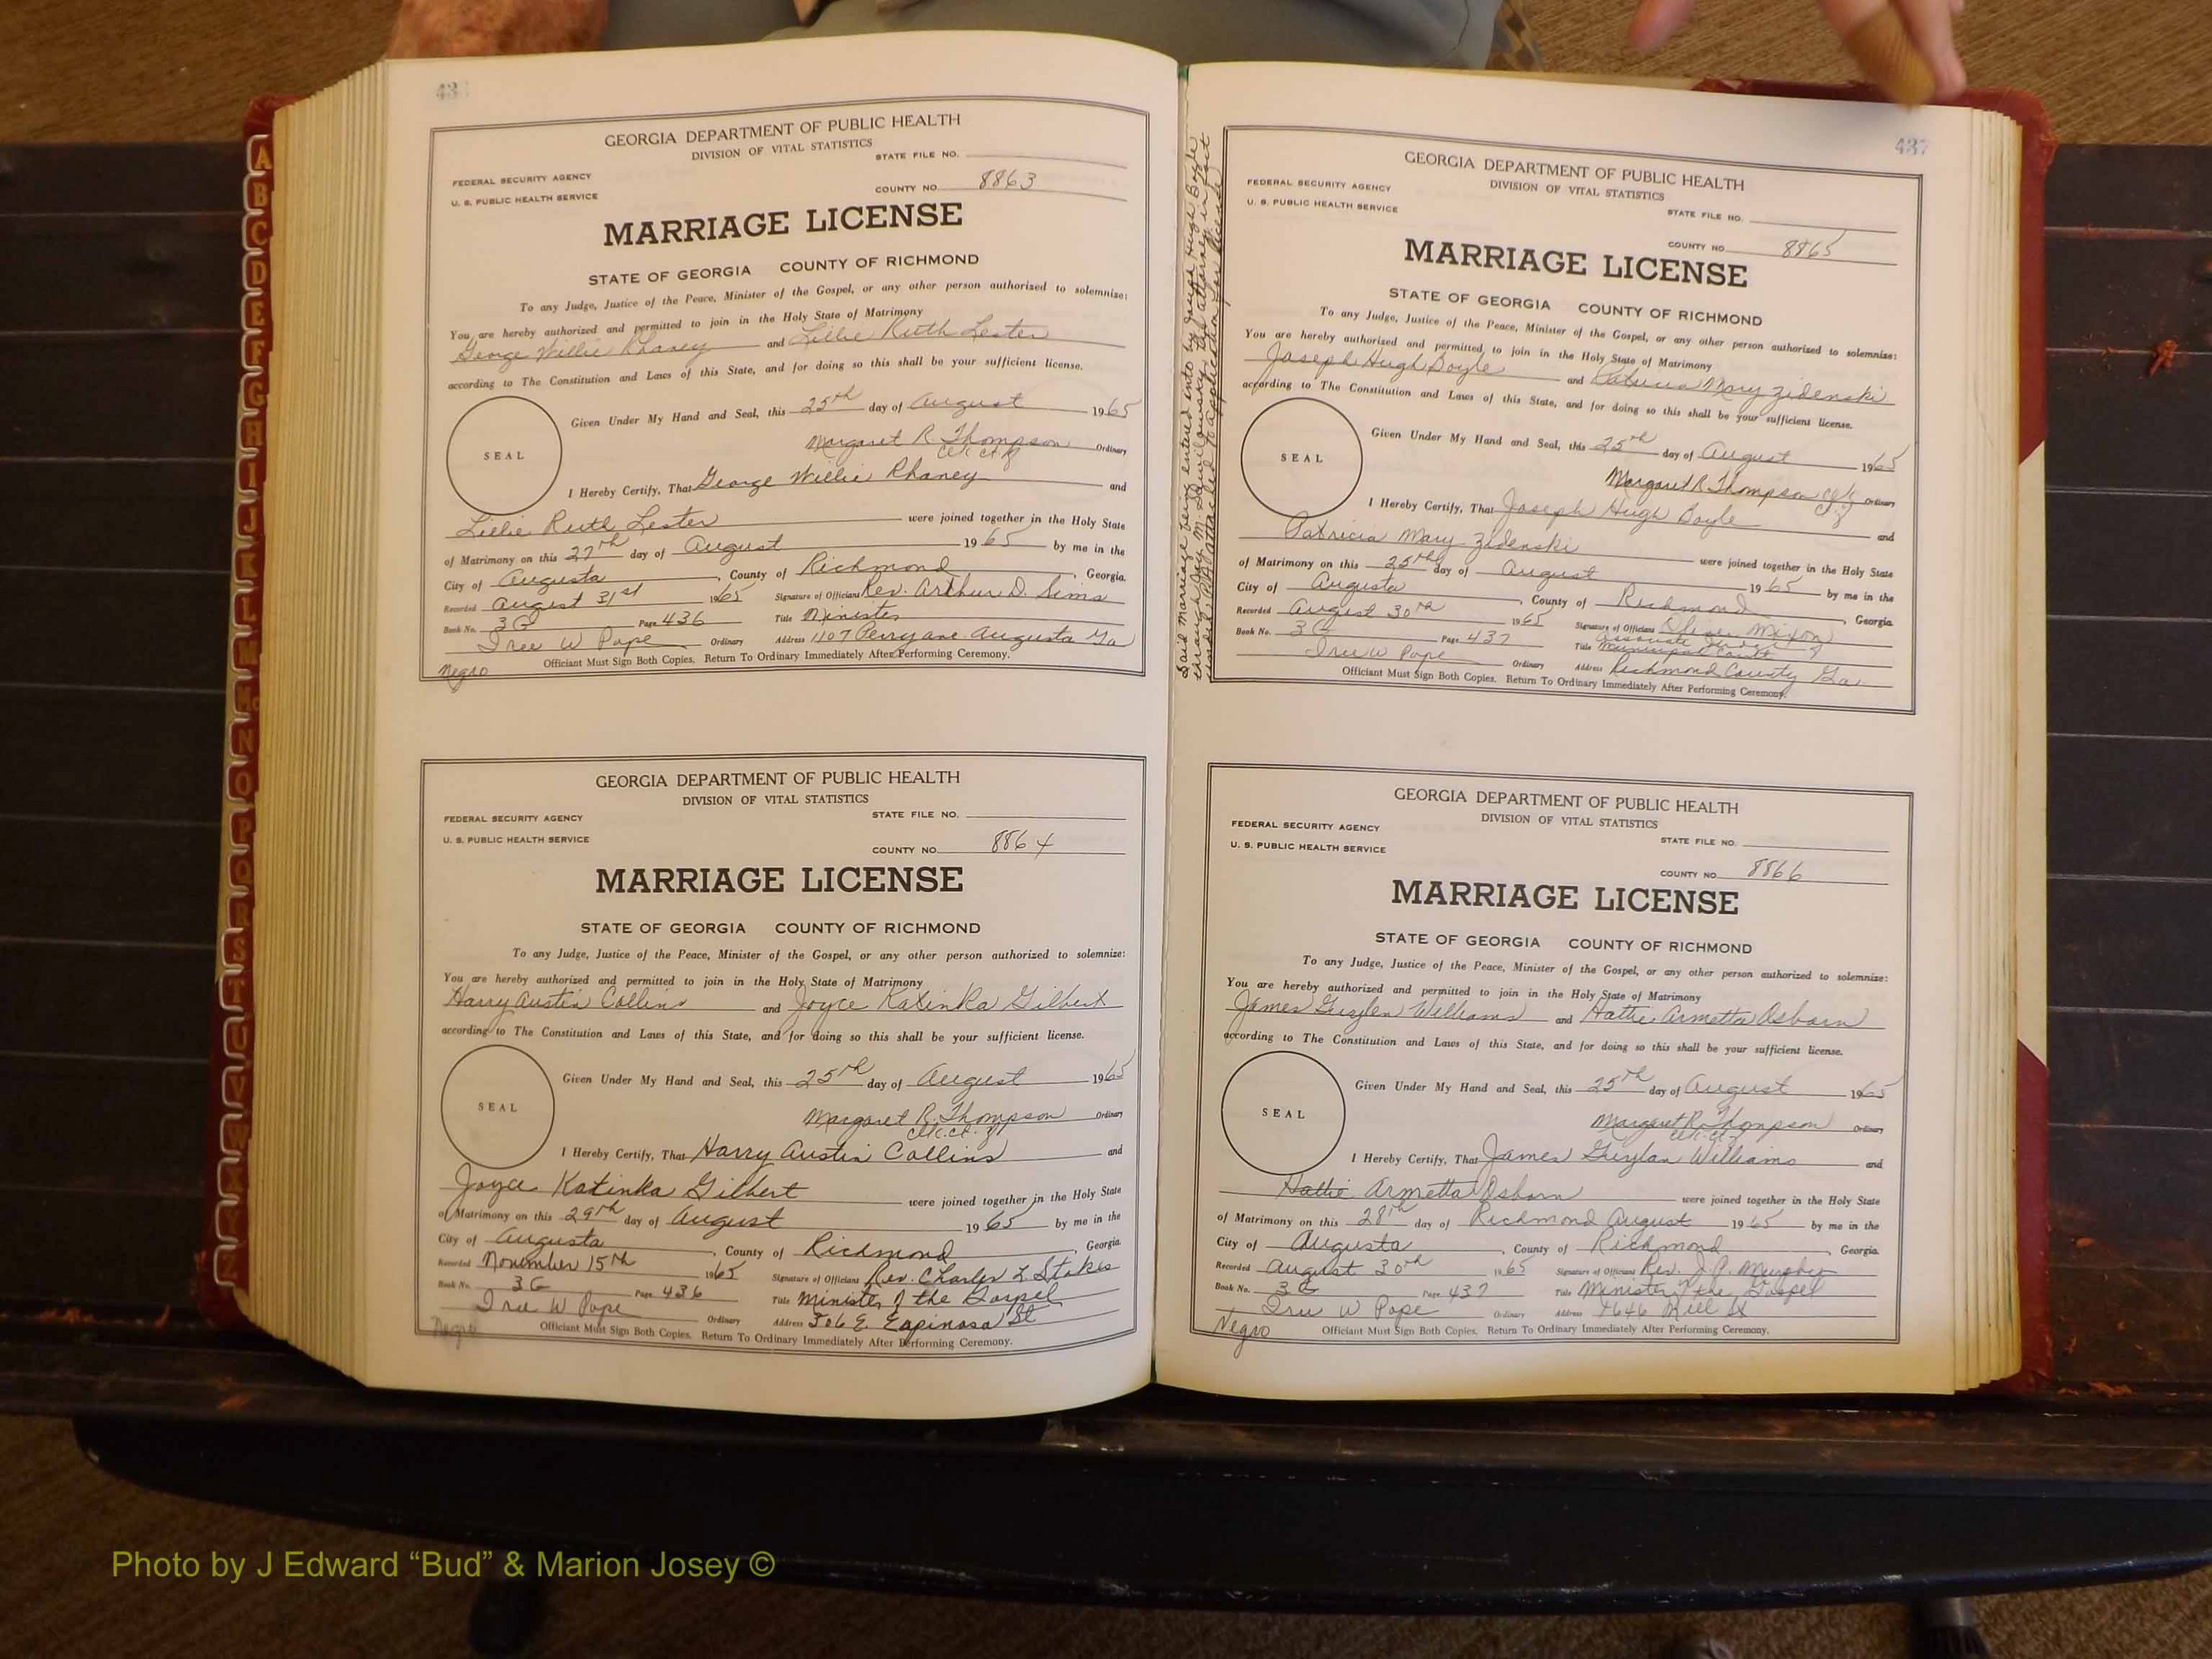 43
GEORGIA DEPARTMENT OF PUBLIC HEALTH
DIVISION OF VITAL STATISTICS
STATE FILE NO.
FEDERAL SECURITY AGENCY
U. S. PUBLIC HEALTH SERVICE
COUNTY NO. 8863
MARRIAGE LICENSE
STATE OF GEORGIA COUNTY OF RICHMOND
To any Judge, Justice of the Peace, Minister of the Gospel, or any other person authorized to solemnize:
You are hereby authorized and permitted to join in the Holy State of Matrimony
George Willie Rhaney and Lillie Ruth Lester
according to The Constitution and Laws of this State, and for doing so this shall be your sufficient license.
SEAL
Given Under My Hand and Seal, this 25th day of August 1965
Margaret R. Thompson Ordinary
I Hereby Certify, That George Willie Rhaney and
Lillie Ruth Lester were joined together in the Holy State
of Matrimony on this 27th day of August 1965 by me in the
City of Augusta, County of Richmond, Georgia.
Recorded August 31st 1965 Signature of Officiant Rev. Arthur D. Sims
Book No. 3G Page 436 Title Minister
Iree W Pope Ordinary Address 1107 Perry ave. Augusta Ga
Officiant Must Sign Both Copies. Return To Ordinary Immediately After Performing Ceremony.
Negro
GEORGIA DEPARTMENT OF PUBLIC HEALTH
DIVISION OF VITAL STATISTICS
STATE FILE NO.
FEDERAL SECURITY AGENCY
U. S. PUBLIC HEALTH SERVICE
COUNTY NO. 8864
MARRIAGE LICENSE
STATE OF GEORGIA COUNTY OF RICHMOND
To any Judge, Justice of the Peace, Minister of the Gospel, or any other person authorized to solemnize:
You are hereby authorized and permitted to join in the Holy State of Matrimony
Harry Austin Collins and Joyce Katinka Gilbert
according to The Constitution and Laws of this State, and for doing so this shall be your sufficient license.
SEAL
Given Under My Hand and Seal, this 25th day of August 1965
Margaret R. Thompson Ordinary
I Hereby Certify, That Harry Austin Collins and
Joyce Katinka Gilbert were joined together in the Holy State
of Matrimony on this 29th day of August 1965 by me in the
City of Augusta, County of Richmond, Georgia.
Recorded November 15th 1965 Signature of Officiant Rev. Charles L. Stokes
Book No. 3G Page 436 Title Minister of the Gospel
Iree W Pope Ordinary Address 506 E. Espinosa St
Officiant Must Sign Both Copies. Return To Ordinary Immediately After Performing Ceremony.
Negro
437
Said Marriage being entered into by Joseph Hugh Boyle
GEORGIA DEPARTMENT OF PUBLIC HEALTH
DIVISION OF VITAL STATISTICS
STATE FILE NO.
FEDERAL SECURITY AGENCY
U. S. PUBLIC HEALTH SERVICE
COUNTY NO. 8865
MARRIAGE LICENSE
STATE OF GEORGIA COUNTY OF RICHMOND
To any Judge, Justice of the Peace, Minister of the Gospel, or any other person authorized to solemnize:
You are hereby authorized and permitted to join in the Holy State of Matrimony
Joseph Hugh Boyle and Patricia Mary Zidenski
according to The Constitution and Laws of this State, and for doing so this shall be your sufficient license.
SEAL
Given Under My Hand and Seal, this 25th day of August 1965
Margaret R. Thompson Ordinary
I Hereby Certify, That Joseph Hugh Boyle and
Patricia Mary Zidenski were joined together in the Holy State
of Matrimony on this 25th day of August 1965 by me in the
City of Augusta, County of Richmond, Georgia.
Recorded August 30th 1965 Signature of Officiant Oliver Mixon
Book No. 3G Page 437 Title Associate Municipal Court
Iree W Pope Ordinary Address Richmond County Ga.
Officiant Must Sign Both Copies. Return To Ordinary Immediately After Performing Ceremony.
GEORGIA DEPARTMENT OF PUBLIC HEALTH
DIVISION OF VITAL STATISTICS
STATE FILE NO.
FEDERAL SECURITY AGENCY
U. S. PUBLIC HEALTH SERVICE
COUNTY NO. 8866
MARRIAGE LICENSE
STATE OF GEORGIA COUNTY OF RICHMOND
To any Judge, Justice of the Peace, Minister of the Gospel, or any other person authorized to solemnize:
You are hereby authorized and permitted to join in the Holy State of Matrimony
James Williams and Hattie Armetta Osborn
according to The Constitution and Laws of this State, and for doing so this shall be your sufficient license.
SEAL
Given Under My Hand and Seal, this 25th day of August 1965
Margaret R. Thompson Ordinary
I Hereby Certify, That James Williams and
Hattie Armetta Osborn were joined together in the Holy State
of Matrimony on this 28th day of Richmond August 1965 by me in the
City of Augusta, County of Richmond, Georgia.
Recorded August 30th 1965 Signature of Officiant Rev. J. P. Murphy
Book No. 3G Page 437 Title Minister of the Gospel
Iree W Pope Ordinary Address
Officiant Must Sign Both Copies. Return To Ordinary Immediately After Performing Ceremony.
Negro
A
B
C
D
E
F
G
H
I
J
K
L
M
Mc
N
O
P
Q
R
S
T
U
V
W
X
Y
Z
Photo by J Edward “Bud” & Marion Josey ©